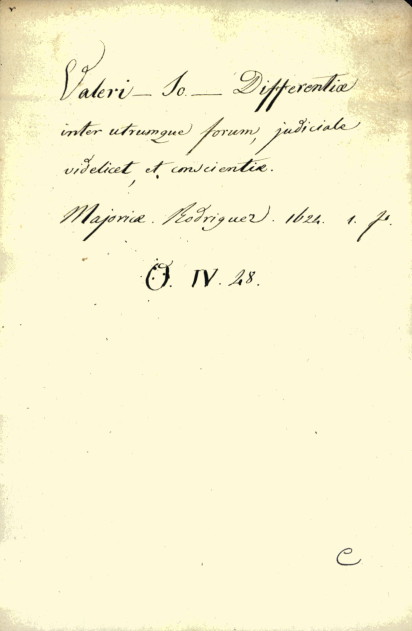 Valeri — Jo. — Differentiæ
inter utrumque forum, judiciale
videlicet, et conscientiæ.
Majoricæ. Rodriguez. 1624. 1. f.
O. IV. 28.
C